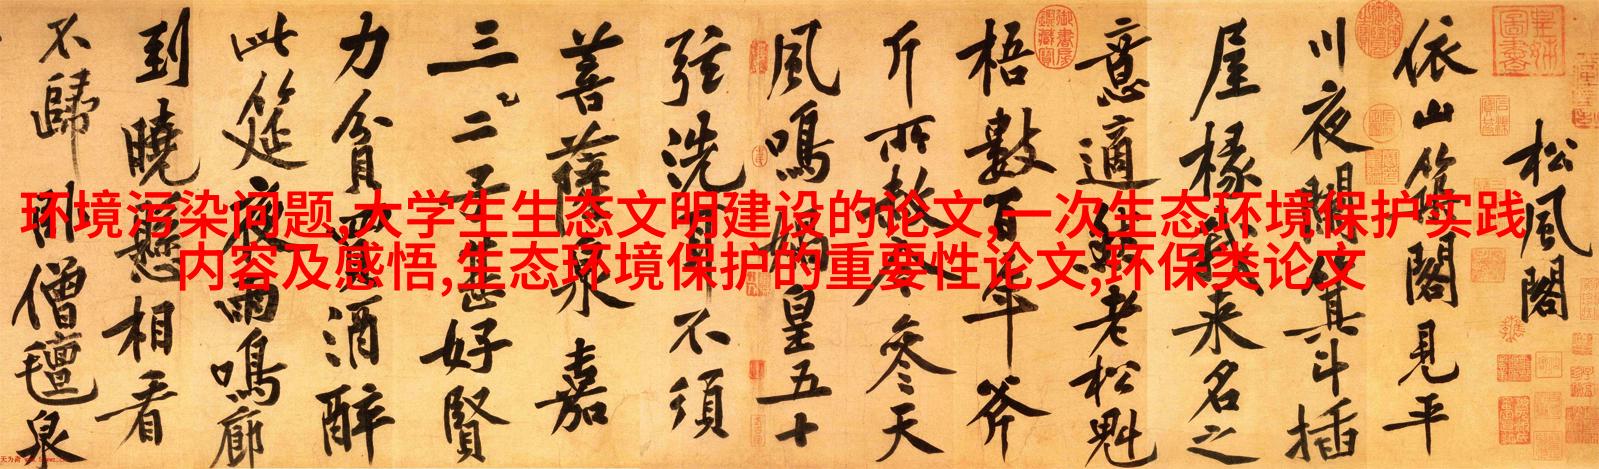 松風閣
依山築閣見平
川夜闌箕斗插
屋椽我來名之
意適然老松魁
梧數百年斧
斤所赦今參天
風鳴媧皇五十
弦洗耳不須
菩薩泉嘉
三二子甚好賢
力貧買酒醉
此筵夜雨鳴廊
到曉懸相看
不歸卧僧氈泉
皇姊圖書
环境污染问题,大学生生态文明建设的论文,一次生态环境保护实践
内容及感悟,生态环境保护的重要性论文,环保类论文